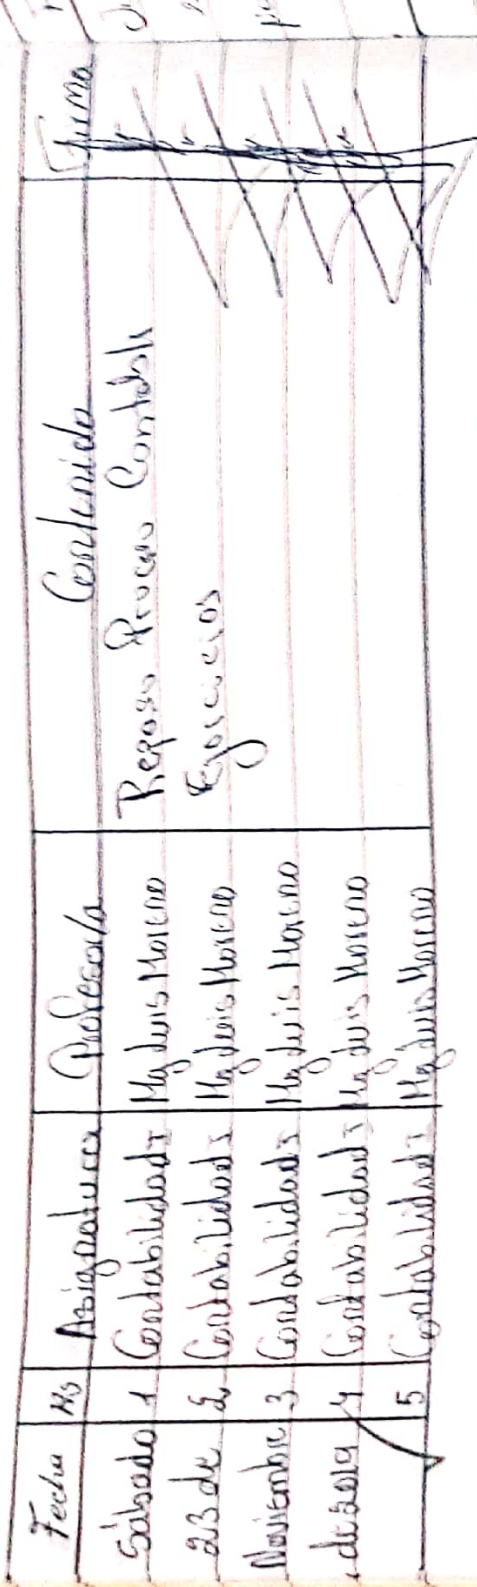 Fecha Hs Asignatura Profesor/a Contenido Firma
Sábado 1 Contabilidad I Mg Luis Moreno Repaso Proceso Contable
23 de 2 Contabilidad I Mg Luis Moreno Ejercicios
Noviembre 3 Contabilidad I Mg Luis Moreno
de 2019 4 Contabilidad I Mg Luis Moreno
5 Contabilidad I Mg Luis Moreno